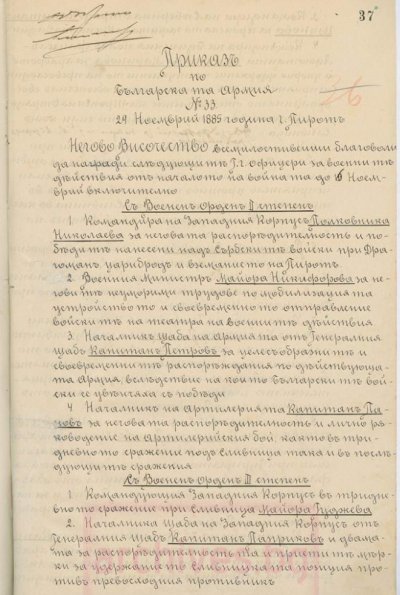 37
Приказъ
по
Българската Армия
№ 33
29 Ноемврий 1885 година г. Пиротъ
Негово Височество всемилостивейши благоволи
да награди слѣдующитѣ Г.г. Офицери за военнитѣ
дѣйствия отъ началото на войната до 16 Ноем-
врий включително
Съ Военен Орденъ II степенъ
1. Командира на Западния Корпусъ Полковника
Николаева за неговата распорѣдителность и по-
бѣдитѣ нанесени надъ сърбскитѣ войски при Дра-
гоманъ, Царибродъ и вземането на Пиротъ
2. Военния Министръ Майора Никифорова за не-
говитѣ неуморими трудове по мобилизацията
устройството и своевременното отправление
войскитѣ на театра на военнитѣ дѣйствия
3. Началникъ щаба на Армията отъ Генералния
щабъ Капитанъ Петровъ за целесъобразнитѣ и
своевременнитѣ распорѣждания по дѣйствующа-
та Армия, вследствие на които Българскитѣ вой-
ски се увенчаха съ победа
4. Началникъ на Артилерията Капитанъ Па-
новъ за неговата распорѣдителность и лично рѫ-
ководение на артилерийския бой, както въ три-
дневното сражение подъ Сливница така и въ послѣ-
дующитѣ сражения
Съ Военен Орденъ III степенъ
1. Командующия Западния Корпусъ въ тридне-
вното сражение при Сливница Майора Гуджева
2. Началника щаба на Западния Корпусъ отъ
Генералния щабъ Капитанъ Паприковъ и двама-
та за распорѣдителностьта и приетитѣ мѣрки
за удержание то Сливнишката позиция про-
тивъ превосходния противникъ